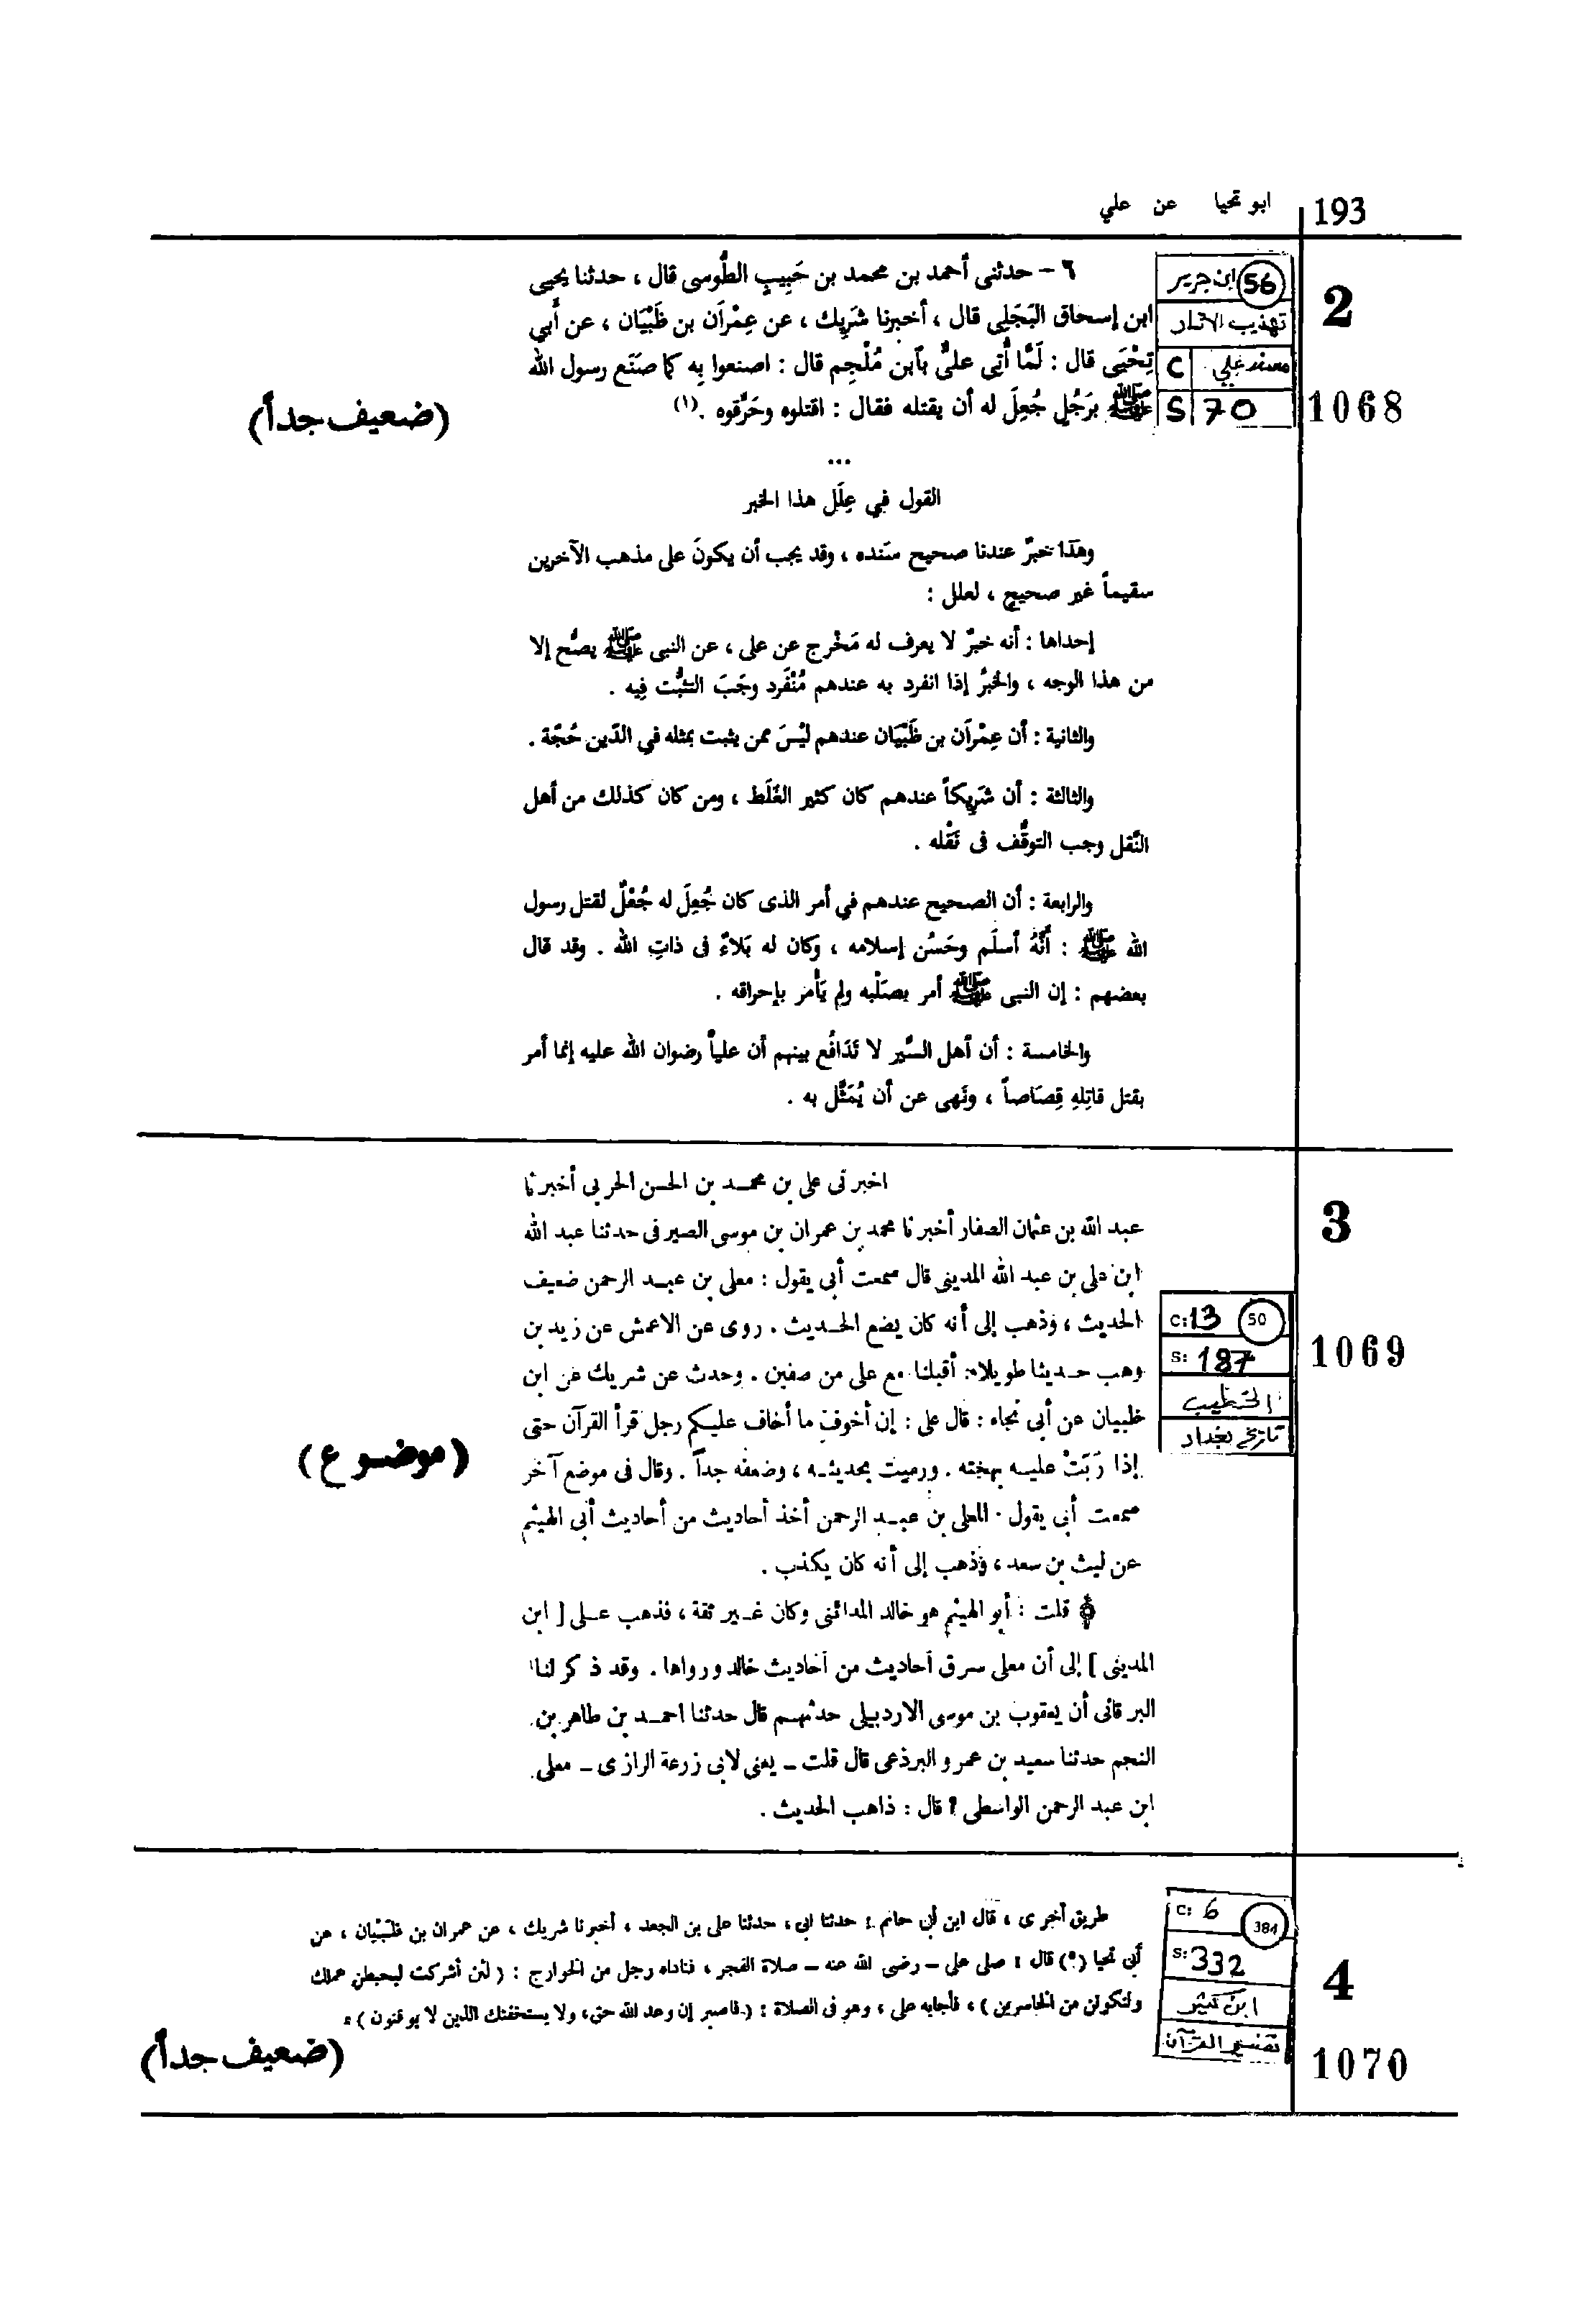 193 ابو تحيا عن علي
2
1068
56 ابن جرير
تهذيب الاثار
مسند علي C
S 70
٦ – حدثنى أحمد بن محمد بن حَبِيبٍ الطُّوسى قال ، حدثنا يحيى
ابن إسحاق البَجَلِى قال ، أخبرنا شَرِيك ، عن عِمْرَان بن ظَبْيَان ، عن أَبي
تِحْيَى قال : لَمَّا أُتِى علىٌّ بآبن مُلْجِم قال : اصنعوا بِه كما صَنَع رسول الله
ﷺ بَرَجُلٍ جُعِلَ له أن يقتله فقال : اقتلوه وحَرِّقوه . (١)
(ضعيف جداً)
...
القول في عِلَل هذا الخبر
وهَذا خبرٌ عندنا صحيح سنَده ، وقد يجب أن يكونَ على مذهب الآخرين
سقيماً غير صحيحٍ ، لعلل :
إحداها : أنه خبرٌ لا يعرف له مَخْرج عن على ، عن النبى ﷺ يصحُّ إلا
من هذا الوجه ، والخبرُ إذا انفرد به عندهم مُنْفَرد وجَبَ التثبُّت فِيه .
والثانية : أن عِمْرَان بن ظَبْيَان عندهم ليْسَ ممن يثبت بمثله في الدّين حُجّة .
والثالثة : أن شَرِيكاً عندهم كان كثير الغَلَط ، ومن كان كذلك من أهل
النَّقل وجب التوقُّف فى نَقْله .
والرابعة : أن الصحيح عندهم في أمر الذى كان جُعِلَ له جُعْلٌ لقتل رسول
الله ﷺ : أَنَّهُ أسلَم وحَسُن إسلامه ، وكان له بَلاءٌ فى ذاتِ الله . وقد قال
بعضهم : إن النبى ﷺ أمر بصَلْبه ولم يَأمر بإحراقه .
والخامسة : أن أهل السِّير لا تَدَافُع بينهم أن علياً رضوان الله عليه إنما أمر
بقتل قاتِلهِ قِصَاصاً ، ونَهى عن أن يُمَثَّل به .
3
1069
C: 13 50
S: 187
الخطيب
تاريخ بغداد
اخبرنى على بن محمد بن الحسن الحربى أخبرنا
عبد الله بن عثمان الصفار أخبرنا محمد بن عمران بن موسى الصيرفى حدثنا عبد الله
ابن على بن عبد الله المدينى قال سمعت أبى يقول : معلى بن عبد الرحمن ضعيف
الحديث ، وذهب إلى أنه كان يضع الحديث . روى عن الاعمش عن زيد بن
وهب حديثا طويلا: أقبلنا مع على من صفين . وحدث عن شريك عن ابن
ظبيان عن أبى نجاء : قال على : إن أخوف ما أخاف عليكم رجل قرأ القرآن حتى
إذا رَبَتْ عليه بهجته . ورميت بحديثه ، وضعفه جداً . وقال فى موضع آخر
سمعت أبى يقول : المعلى بن عبد الرحمن أخذ أحاديث من أحاديث أبى الهيثم
عن ليث بن سعد ، وذهب إلى أنه كان يكذب .
قلت : أبو الهيثم هو خالد المدائنى وكان غير ثقة ، فذهب على [ ابن
المدينى ] إلى أن معلى سرق أحاديث من أحاديث خالد ورواها . وقد ذكر لنا
البرقانى أن يعقوب بن موسى الاردبيلى حدثهم قال حدثنا احمد بن طاهر بن
النجم حدثنا سعيد بن عمرو البرذعى قال قلت – يعنى لابى زرعة الرازى – معلى
ابن عبد الرحمن الواسطى ؟ قال : ذاهب الحديث .
(موضوع)
4
1070
C: 6 384
S: 332
ابن كثير
تفسير القرآن
طريق أخرى ، قال ابن أبى حاتم : حدثنا أبى ، حدثنا على بن الجعد ، أخبرنا شريك ، عن عمران بن ظبيان ، عن
أبى تحيا (٥) قال : صلى على – رضى الله عنه – صلاة الفجر ، فناداه رجل من الخوارج : ( لئن أشركت ليحبطن عملك
ولتكونن من الخاسرين ) ، فأجابه على ، وهو فى الصلاة : ( فاصبر إن وعد الله حق، ولا يستخفنك الذين لا يوقنون ) :
(ضعيف جداً)